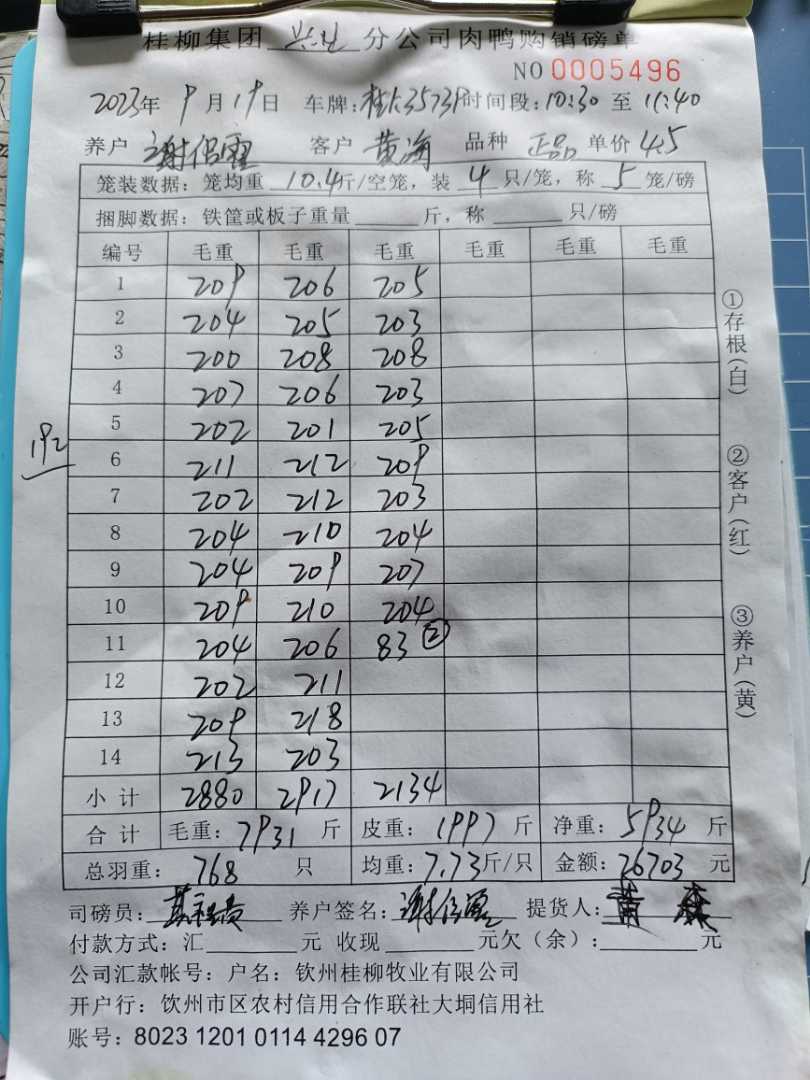 桂柳集团 分公司肉鸭购销磅单
NO 0005496
2023年 9月19日 车牌: 时间段:10:30 至 11:40
养户 谢 客户 黄海 品种 正品 单价 4.5
笼装数据:笼均重 10.4斤/空笼,装 4 只/笼,称 5 笼/磅
捆脚数据:铁筐或板子重量 斤,称 只/磅
编号 毛重 毛重 毛重 毛重 毛重 毛重
1 209 206 205
2 204 205 203
3 200 208 208
4 207 206 203
5 202 201 205
192
6 211 212 209
7 202 212 203
8 204 210 204
9 204 209 207
10 209 210 204
11 204 206 83 ②
12 202 211
13 209 218
14 213 203
小计 2880 2917 2134
合计 毛重:7931 斤 皮重:1997 斤 净重:5934 斤
总羽重:768 只 均重:7.73斤/只 金额:26703 元
司磅员: 养户签名:谢 提货人:黄
付款方式:汇 元 收现 元欠(余): 元
公司汇款帐号:户名:钦州桂柳牧业有限公司
开户行:钦州市区农村信用合作联社大垌信用社
账号:8023 1201 0114 4296 07
①存根(白)
②客户(红)
③养户(黄)